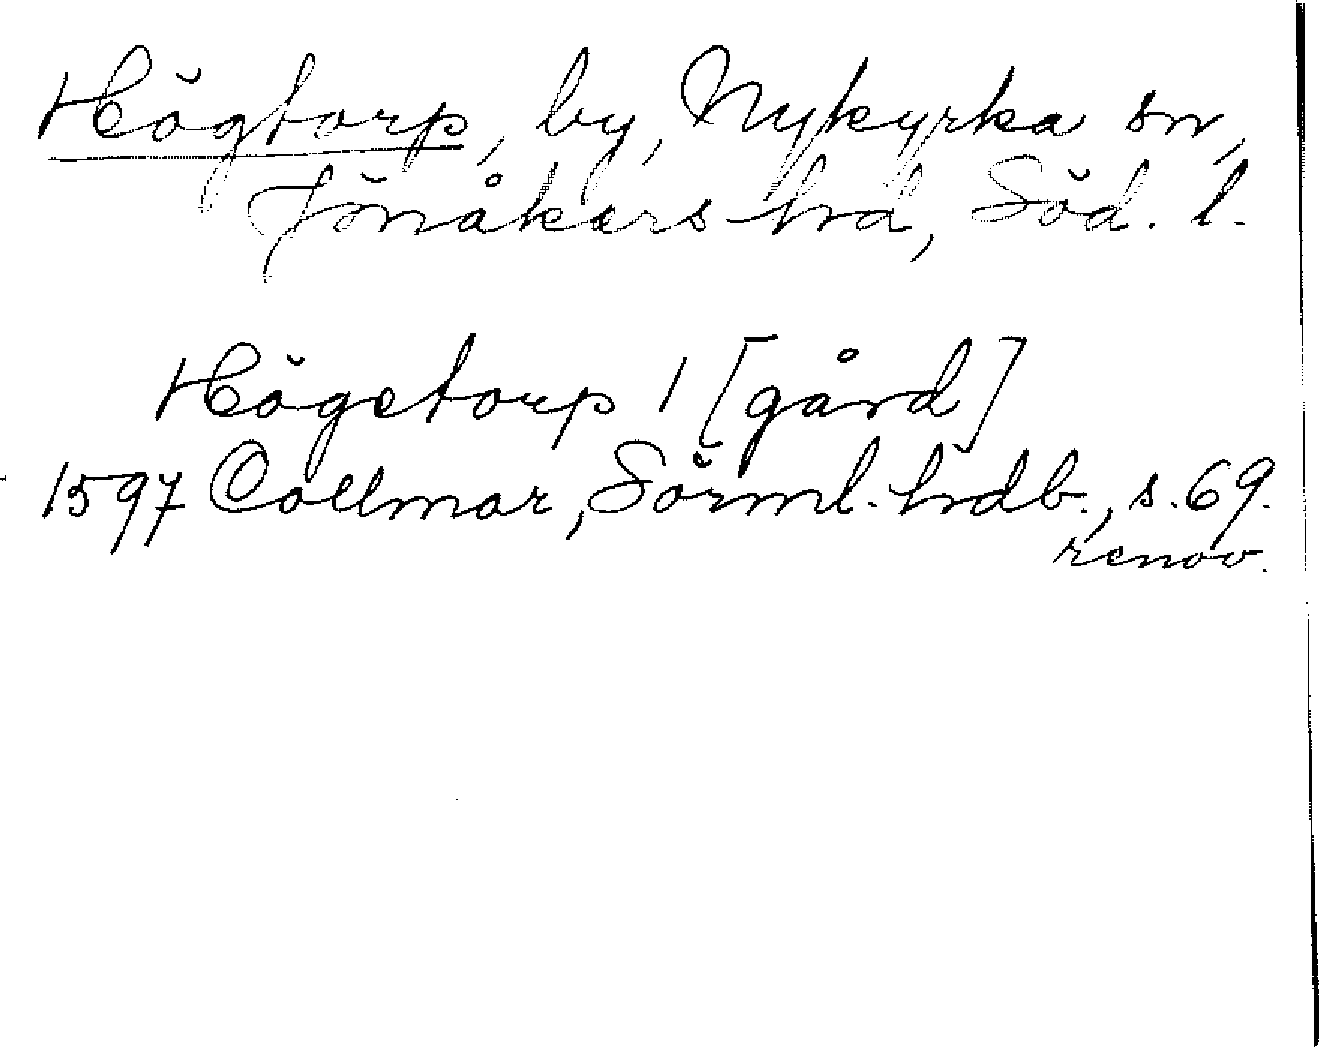 Högtorp, by, Nykyrka sn,
Jönåkers hd, Söd. l.
Högetorp 1 [gård]
1597 Collmar, Sörml. hdb., s. 69.
renov.